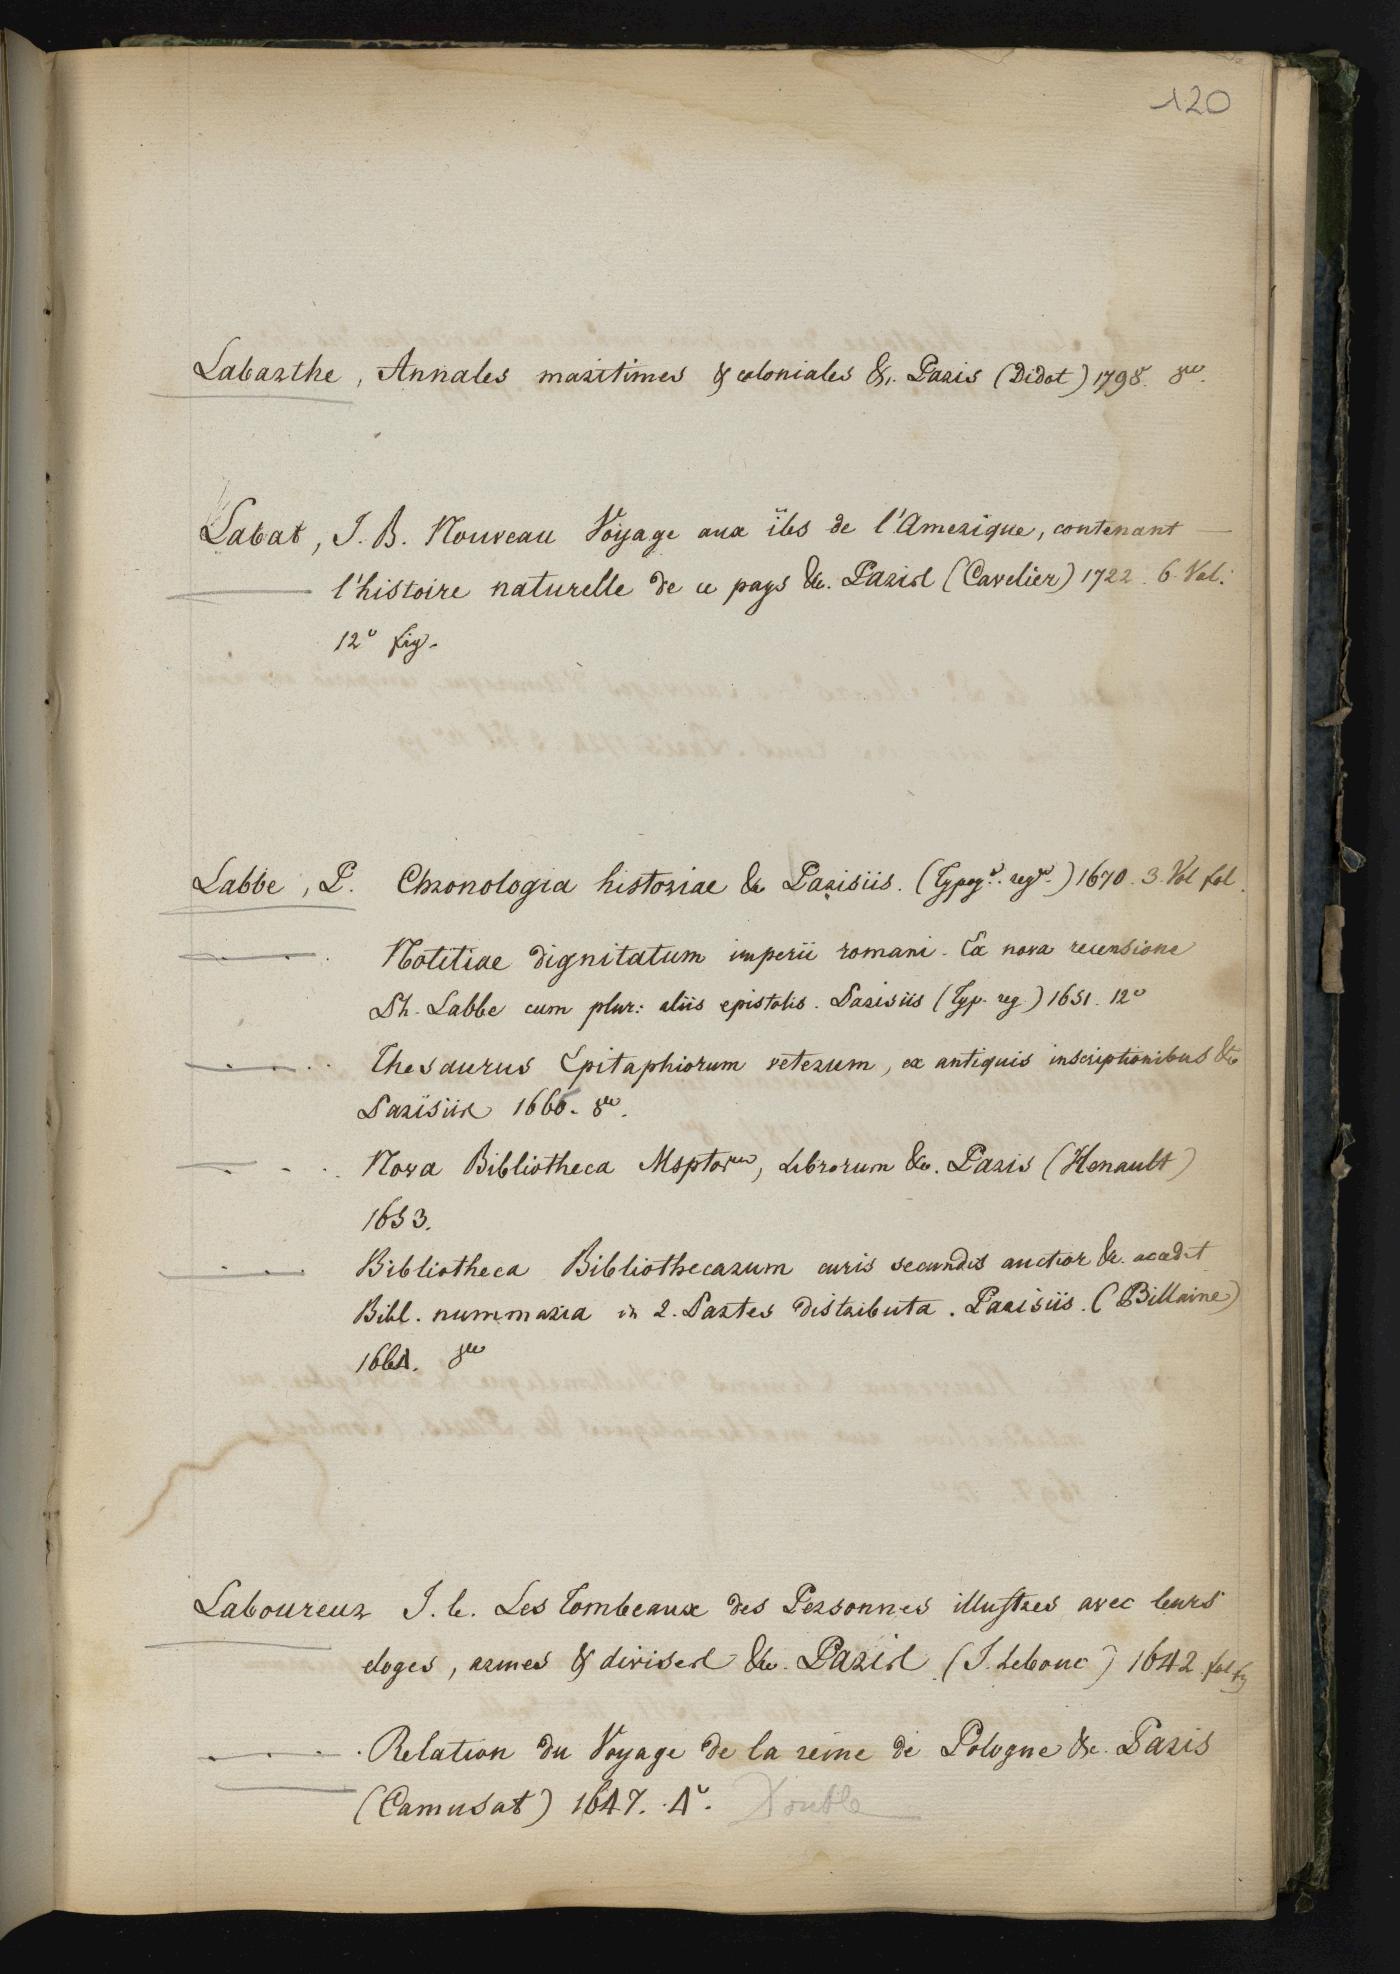 120
Labarthe, Annales maritimes & coloniales &. Paris (Didot) 1798. 8vo.
Labat, J. B. Nouveau Voyage aux iles de l'Amerique, contenant
l'histoire naturelle de ce pays &c. Paris (Cavelier) 1722. 6 Vol.
12° fig.
Labbe, P. Chronologia historiae &c Parisiis. (Typogr. regia.) 1670. 3. Vol fol.
Notitiae dignitatum imperii romani. Ex nova recensione
Ph. Labbe cum plur: aliis epistolis. Parisiis (Typ. reg.) 1651. 12°
Thesaurus Epitaphiorum veterum, ex antiquis inscriptionibus &c
Parisiis 1666. 8vo.
Nova Bibliotheca Msptorum, Librorum &c. Paris (Henault)
1653.
Bibliotheca Bibliothecarum curis secundis auctior &c. accedit
Bibl. nummaria in 2. Partes distributa. Parisiis. (Billaine)
1664. 8vo
Laboureur J. le. Les Tombeaux des Personnes illustres avec leurs
eloges, armes & divises &c. Paris (J. Lebouc) 1642. fol fig
Relation du Voyage de la reine de Pologne &c. Paris
(Camusat) 1647. 4°. Double